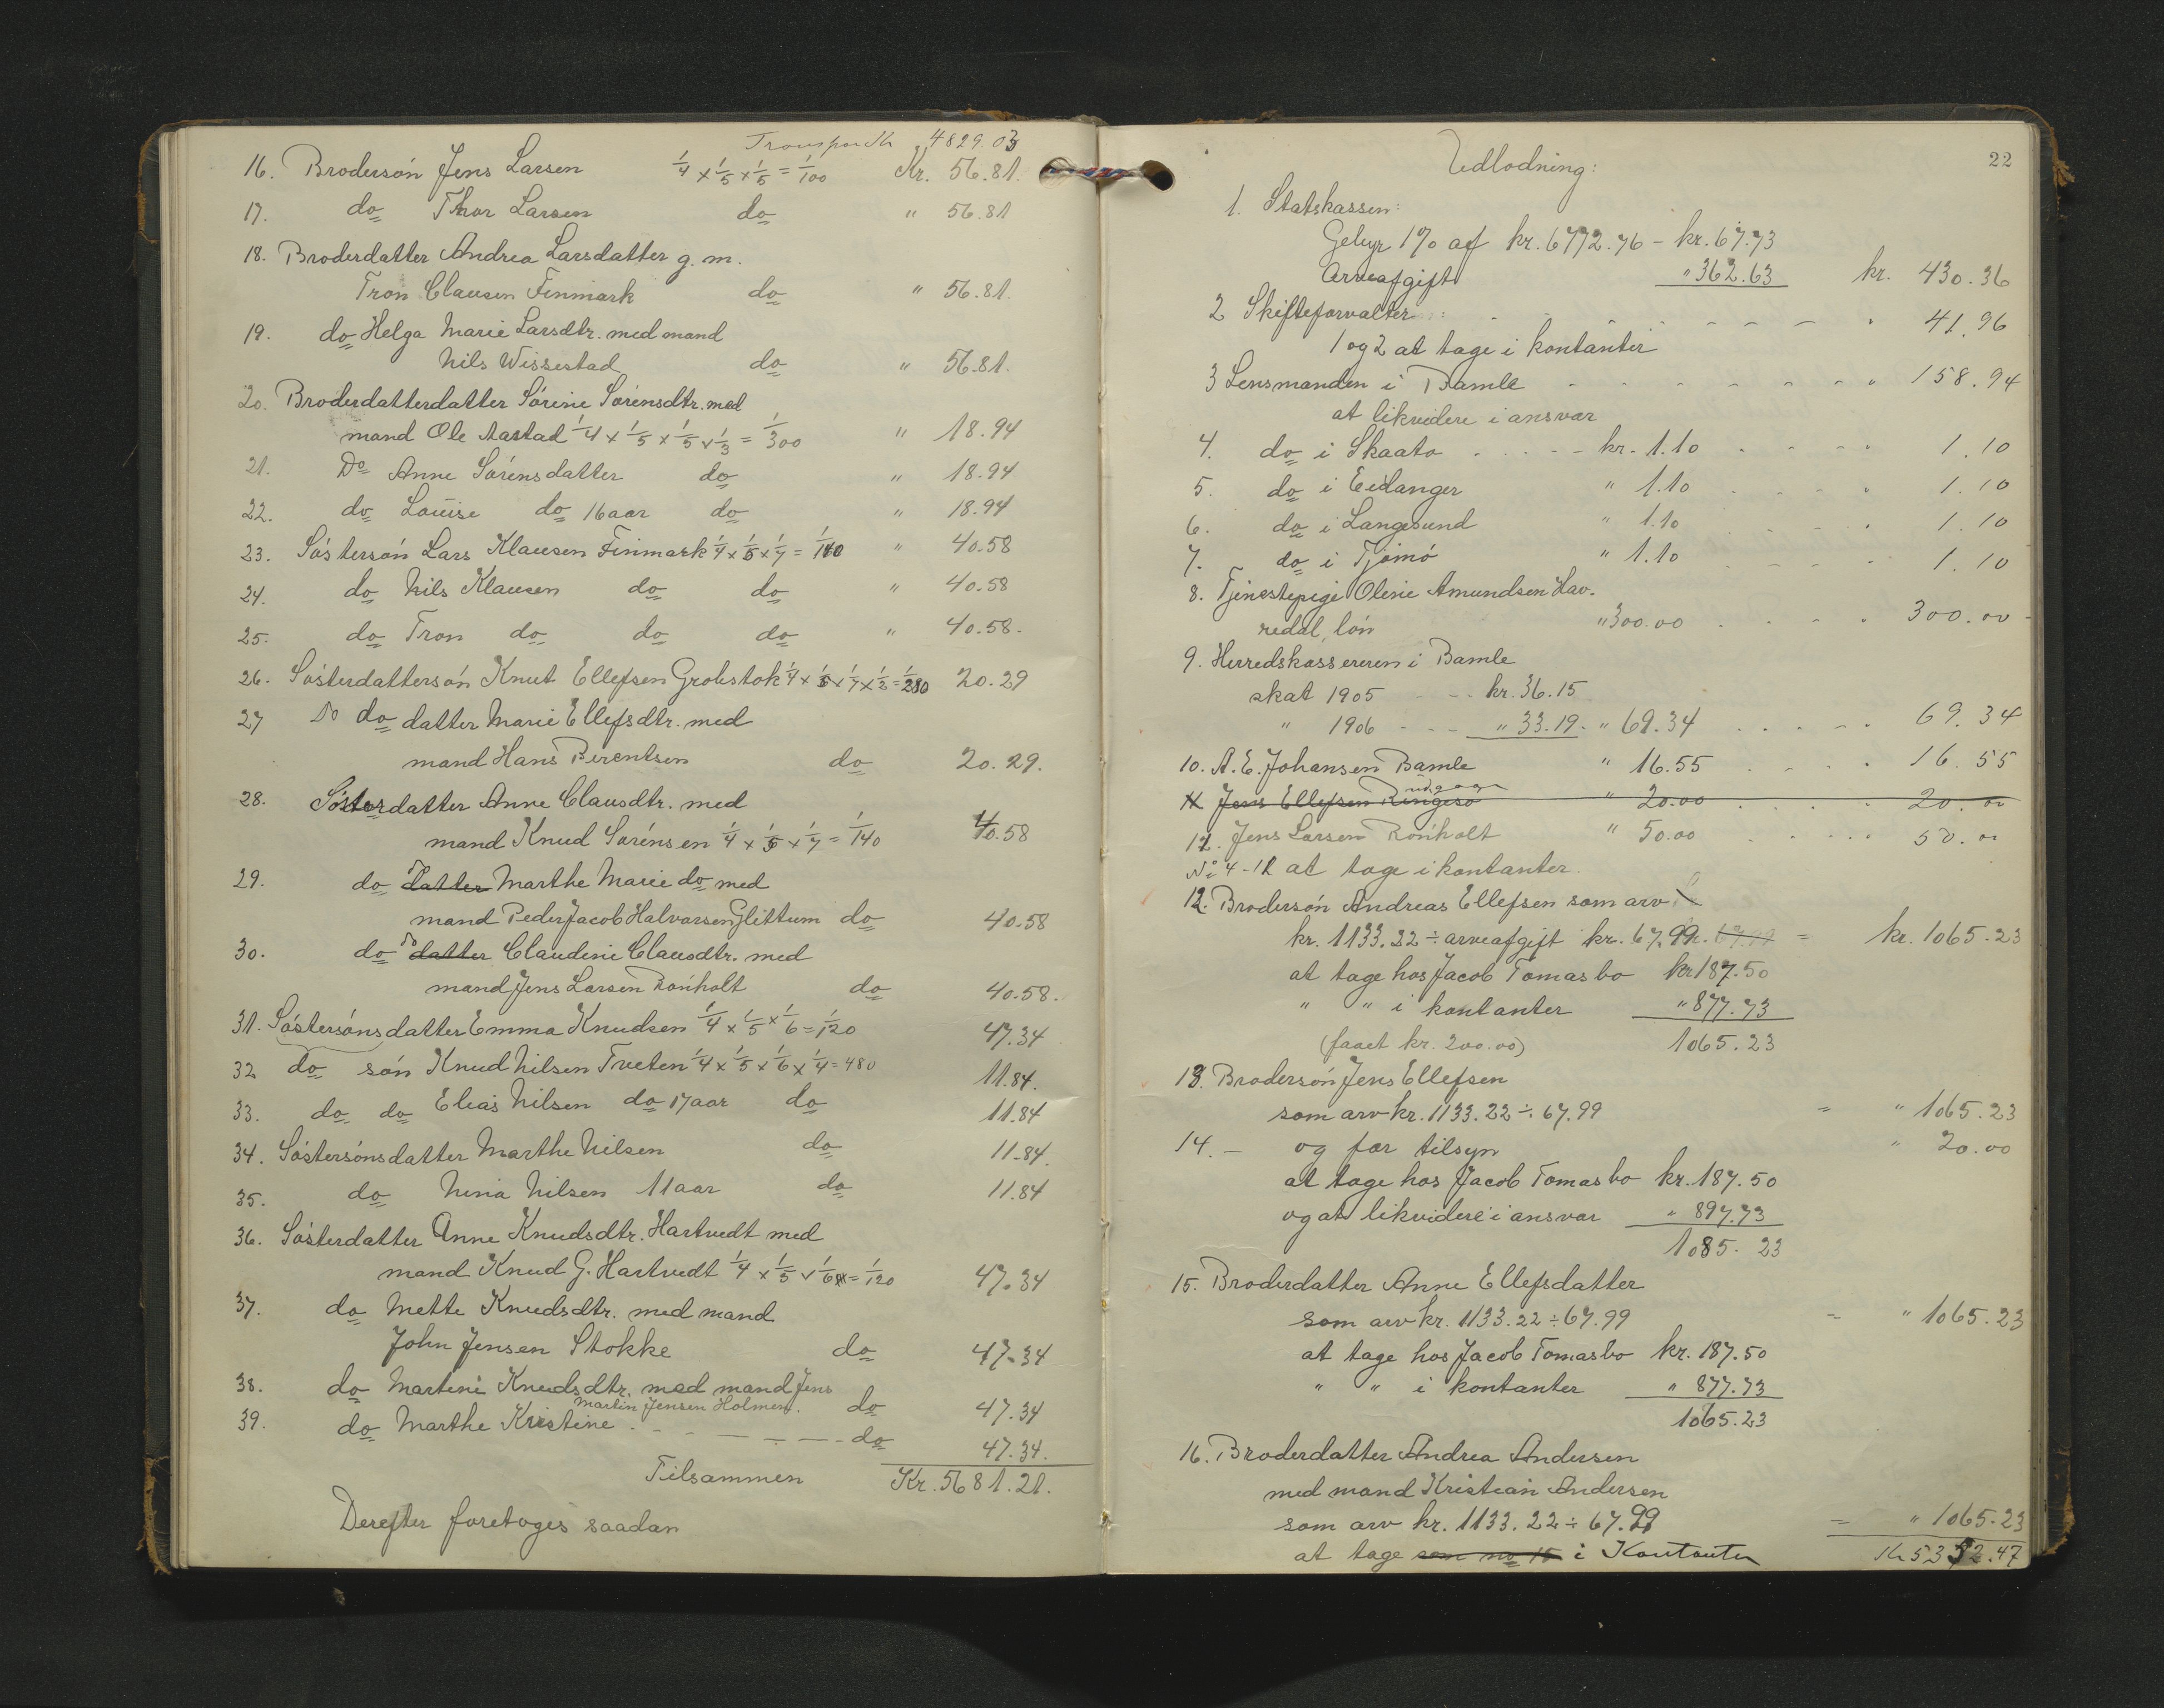 Transport Kr. 4829.03
16. Brodersön Jens Larsen 1/4 x 1/5 x 1/5 = 1/100 Kr. 56.81.
17. do Thor Larsen do " 56.81
18. Broderdatter Andrea Larsdatter g. m.
Tron Clausen Finmark do " 56.81.
19. do Helga Marie Larsdtr. med mand
Nils Wissestad do " 56.81.
20. Broderdatterdatter Sörine Sörensdtr. med
mand Ole Aastad 1/4 x 1/5 x 1/5 x 1/3 = 1/300 " 18.94
21. Do Anne Sörensdatter do " 18.94
22. do Louise do 16 aar do " 18.94
23. Söstersön Lars Klausen Finmark 1/4 x 1/5 x 1/7 = 1/140 " 40.58
24. do Nils Klausen do do " 40.58
25. do Tron do do do " 40.58.
26. Sösterdattersön Knut Ellefsen Grobstok 1/4 x 1/5 x 1/7 x 1/2 = 1/280 20.29
27 Do do datter Marie Ellefsdtr. med
mand Hans Berentsen do 20.29.
28. Sösterdatter Anne Clausdtr. med
mand Knud Sörensen 1/4 x 1/5 x 1/7 = 1/140 40.58
29. do Do datter Marthe Marie do med
mand Peder Jacob Halvorsen Glittum do 40.58
30. do Do datter Claudine Clausdtr. med
mand Jens Larsen Rönholt do 40.58.
31. Söstersönsdatter Emma Knudsen 1/4 x 1/5 x 1/6 = 1/120 47.34
32 do sön Knud Nilsen Tveten 1/4 x 1/5 x 1/6 x 1/4 = 480 11.84.
33. do do Elias Nilsen do 17 aar do 11.84
34. Söstersönsdatter Marthe Nilsen do 11.84.
35. do Nina Nilsen 11 aar do 11.84
36. Sösterdatter Anne Knudsdtr. Hartvedt med
mand Knud G. Hartvedt 1/4 x 1/5 x 1/6 = 1/120 47.34
37. do Mette Knudsdtr. med mand
John Jensen Stokke do 47.34
38. do Martine Knudsdtr. med mand Jens
Martin Jensen Holmen. do 47.34
39. do Marthe Kristine . - - - - - do 47.34.
Tilsammen Kr. 5681.21.
Derefter foretoges saadan
22
Udlodning:
1. Statskassen:
Gebyr 1% af kr. 6772.76 - kr. 67.73
Arveafgift " 362.63 kr. 430.36
2 Skifteforvalter : - - - - - - " 41.96
1 og 2 at tage i kontanter
3 Lensmanden i Bamle - - - - - - " 158.94
at likvidere i ansvar
4. do i Skaato - - - - kr. 1.10 - - - " 1.10
5. do i Eidanger " 1.10 - - - " 1.10
6. do i Langesund " 1.10 - - - " 1.10
7. do i Tjömö " 1.10 - - - " 1.10
8. Tjenestepige Oline Amundsen Hav-
redal, lön " 300.00 - - - " 300.00
9. Herredskassereren i Bamle
skat 1905 - - - kr. 36.15
" 1906 - - - " 33.19 - " 69.34 - - - - 69.34
10. A. E. Johansen Bamle " 16.55 - - - - 16.55
11 Jens Ellefsen Ringesö udgaar " 20.00 - - - 20.00
11. Jens Larsen Rönholt " 50.00 - - - - 50.00
No 4-11 at tage i kontanter.
12. Brodersön Andreas Ellefsen som arv
kr. 1133.22 ÷ arveafgift kr. 67.99 = kr. 1065.23
at tage hos Jacob Tomasbo kr 187.50
" " i kontanter " 877.73
(faaet kr. 200.00) 1065.23
13. Brodersön Jens Ellefsen
som arv kr. 1133.22 ÷ 67.99 = " 1065.23
14. - og for tilsyn " 20.00
at tage hos Jacob Tomasbo kr. 187.50
og at likvidere i ansvar " 897.73
1085.23
15. Broderdatter Anne Ellefsdatter
som arv kr. 1133.22 ÷ 67.99 = " 1065.23
at tage hos Jacob Tomasbo kr. 187.50
" " i kontanter " 877.73
1065.23
16. Broderdatter Andrea Andersen
med mand Kristian Andersen
som arv kr. 1133.22 ÷ 67.99 = " 1065.23
at tage som no 15 i Kontanter Kr 5352.47